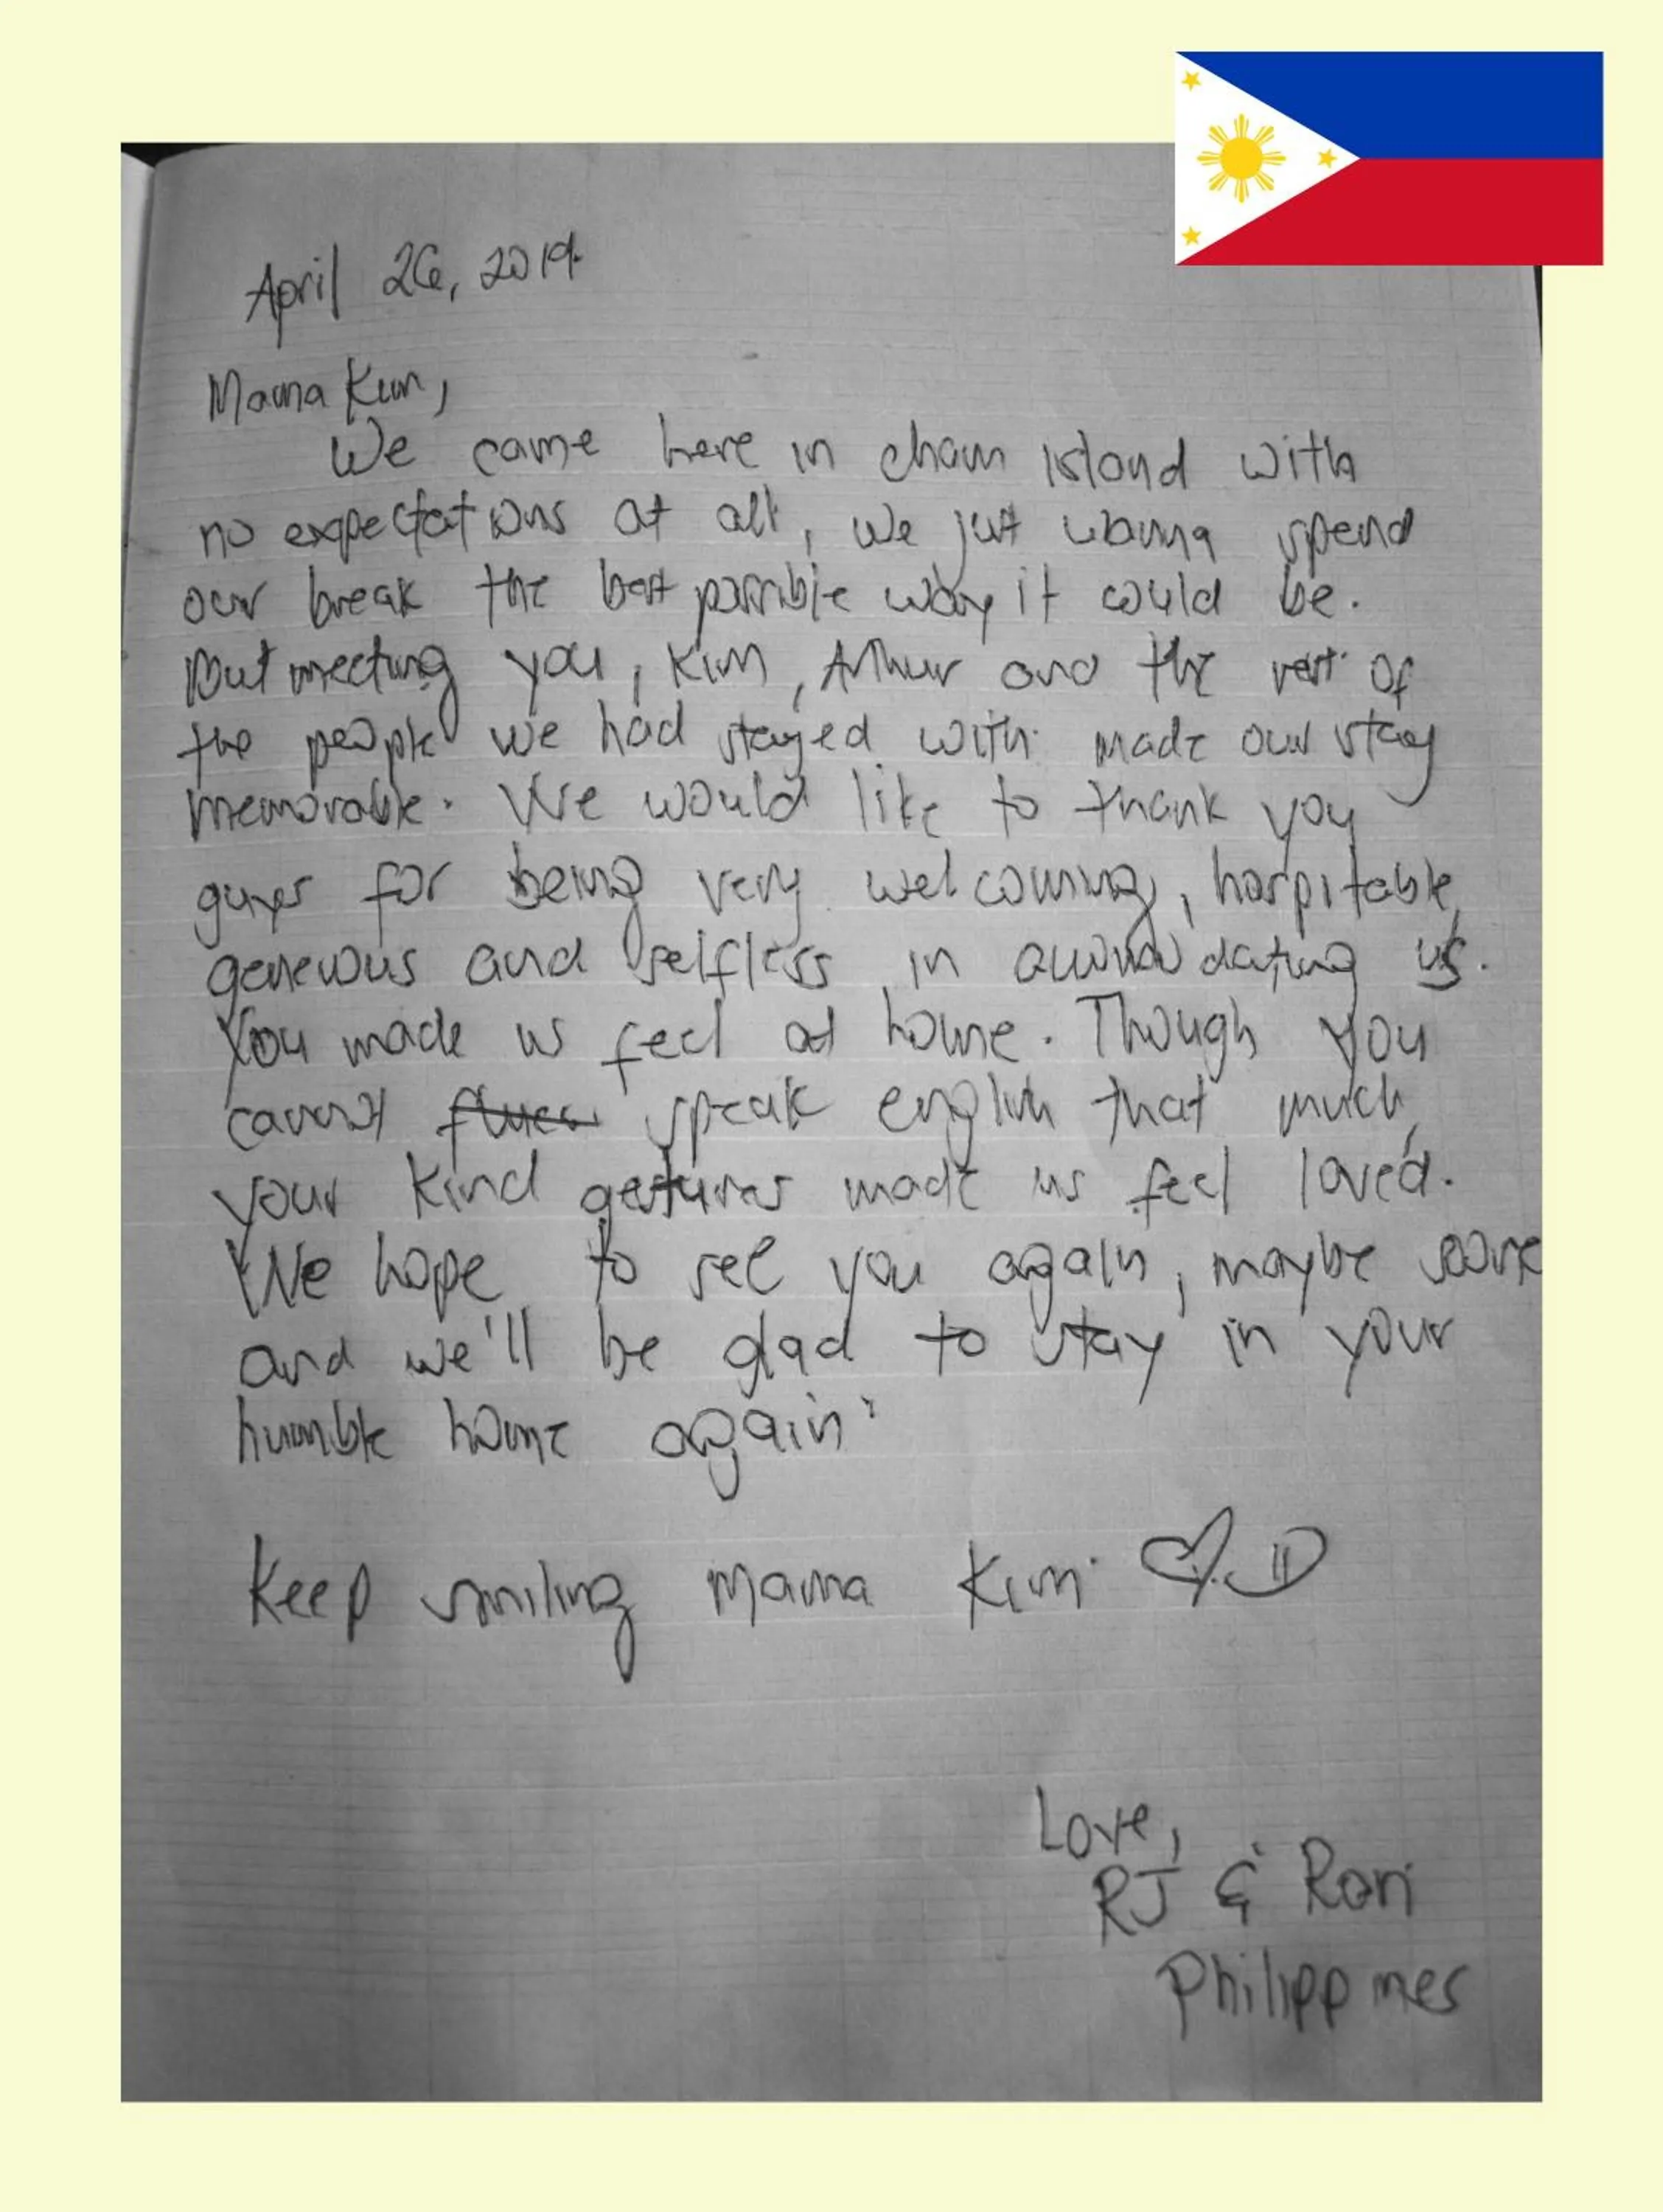 April 26, 2019.
Mama Kim,
We came here in cham island with
no expectations at all, we just wanna spend
our break the best possible way it could be.
But meeting you, Kim, Arthur and the rest of
the people we had stayed with made our stay
memorable. We would like to thank you
guys for being very welcoming, hospitable,
generous and selfless in accomodating us.
You made us feel at home. Though you
cannot speak english that much,
your kind gestures made us feel loved.
We hope to see you again, maybe
and we'll be glad to stay in your
humble home again.
Keep smiling Mama Kim.
Love,
RJ & Ron
Philippines